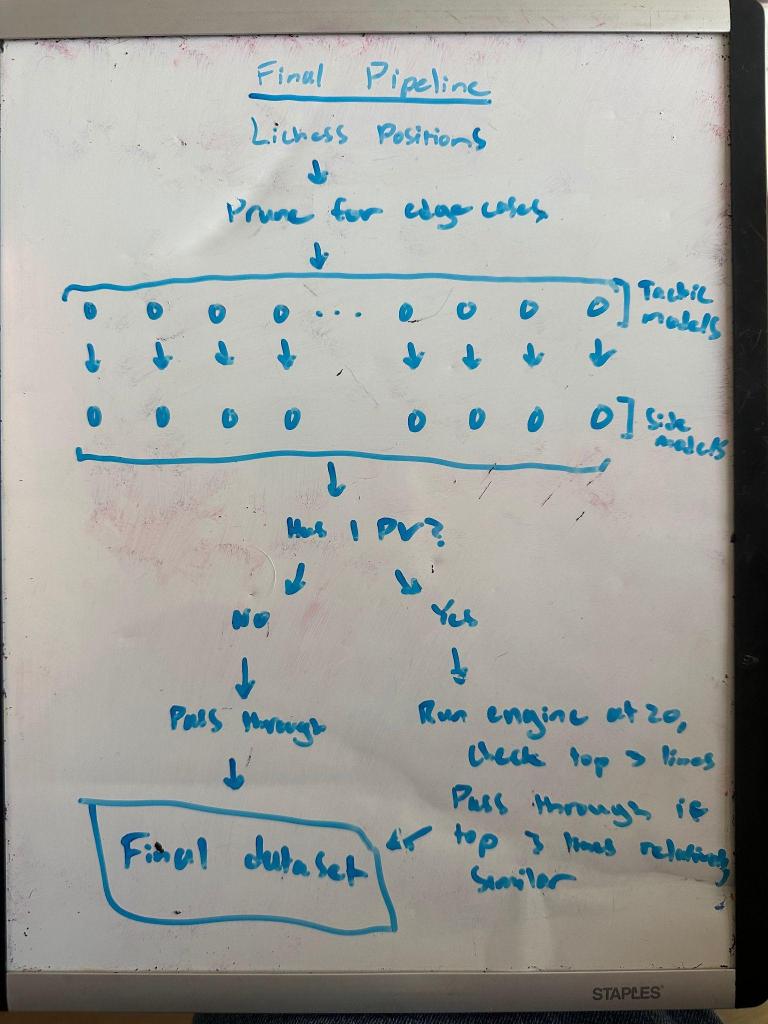 Final Pipeline
Lichess Positions
Prune for edge cases
Tactic
models
Side
models
Has 1 PV?
No
Yes
Pass through
Run engine at 20,
check top 3 lines
Pass through if
top 3 lines relatively
similar
Final dataset
STAPLES